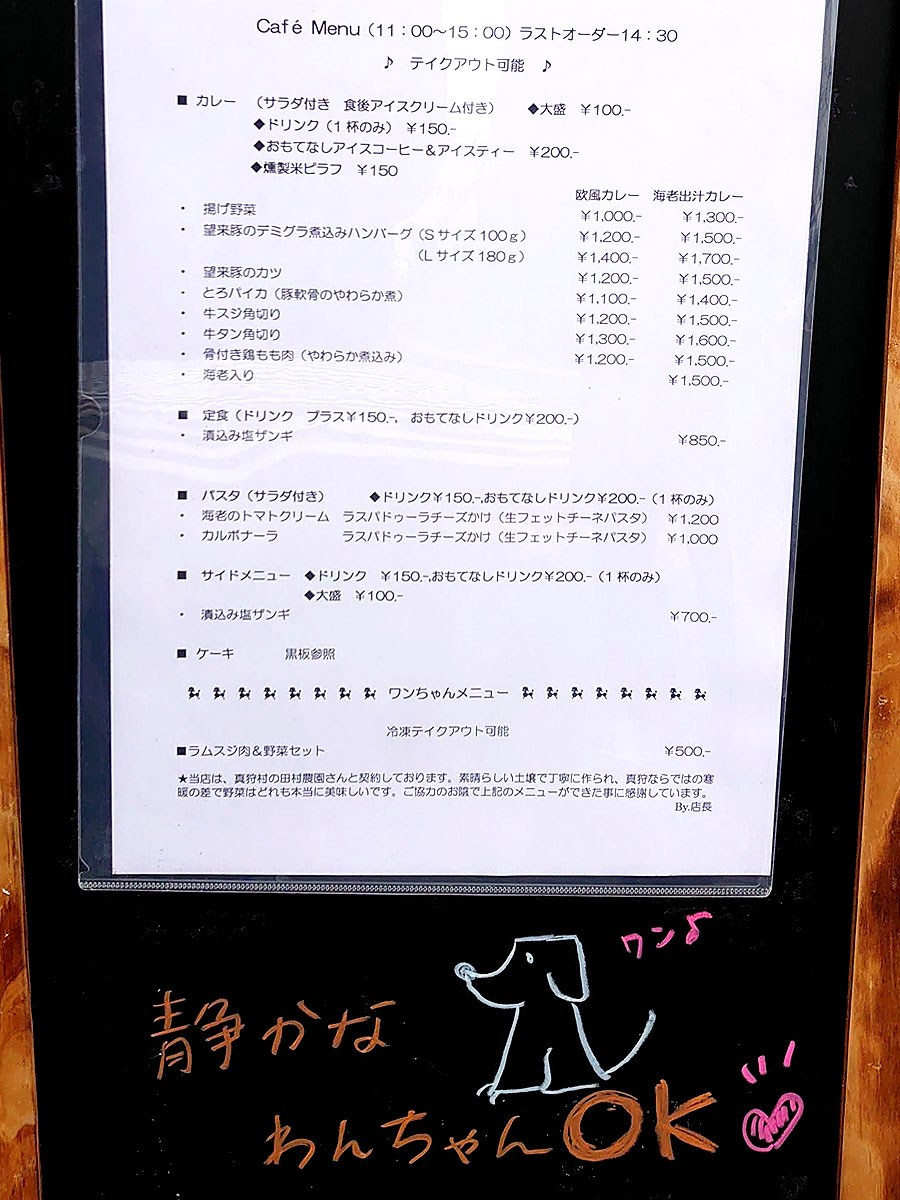 Café Menu（11：00～15：00）ラストオーダー14：30
♪　テイクアウト可能　♪
■ カレー　（サラダ付き　食後アイスクリーム付き）　◆大盛　￥100.-
◆ドリンク（1杯のみ）　￥150.-
◆おもてなしアイスコーヒー＆アイスティー　￥200.-
◆燻製米ピラフ　￥150
欧風カレー　海老出汁カレー
・ 揚げ野菜　￥1,000.-　￥1,300.-
・ 望来豚のデミグラ煮込みハンバーグ（Sサイズ100ｇ）　￥1,200.-　￥1,500.-
（Lサイズ180ｇ）　￥1,400.-　￥1,700.-
・ 望来豚のカツ　￥1,200.-　￥1,500.-
・ とろパイカ（豚軟骨のやわらか煮）　￥1,100.-　￥1,400.-
・ 牛スジ角切り　￥1,200.-　￥1,500.-
・ 牛タン角切り　￥1,300.-　￥1,600.-
・ 骨付き鶏もも肉（やわらか煮込み）　￥1,200.-　￥1,500.-
・ 海老入り　￥1,500.-
■ 定食（ドリンク　プラス￥150.-,　おもてなしドリンク￥200.-）
・ 漬込み塩ザンギ　￥850.-
■ パスタ（サラダ付き）　◆ドリンク￥150.-,おもてなしドリンク￥200.-（1杯のみ）
・ 海老のトマトクリーム　ラスパドゥーラチーズかけ（生フェットチーネパスタ）　￥1,200
・ カルボナーラ　ラスパドゥーラチーズかけ（生フェットチーネパスタ）　￥1,000
■ サイドメニュー　◆ドリンク　￥150.-,おもてなしドリンク￥200.-（1杯のみ）
◆大盛　￥100.-
・ 漬込み塩ザンギ　￥700.-
■ ケーキ　黒板参照
ワンちゃんメニュー
冷凍テイクアウト可能
■ラムスジ肉＆野菜セット　￥500.-
★当店は、真狩村の田村農園さんと契約しております。素晴らしい土壌で丁寧に作られ、真狩ならではの寒
暖の差で野菜はどれも本当に美味しいです。ご協力のお陰で上記のメニューができた事に感謝しています。
By.店長
ワン♪
静かな
わんちゃんOK